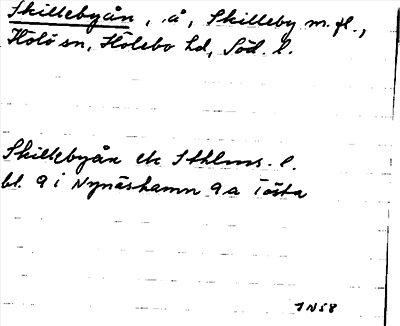 Skillebyån, å, Skilleby m. fl.,
Hölö sn, Hölebo hd, Söd. l.
Skillebyån ek Sthlms. l.
bl. 9 i Nynäshamn 9a Tösta
JN58